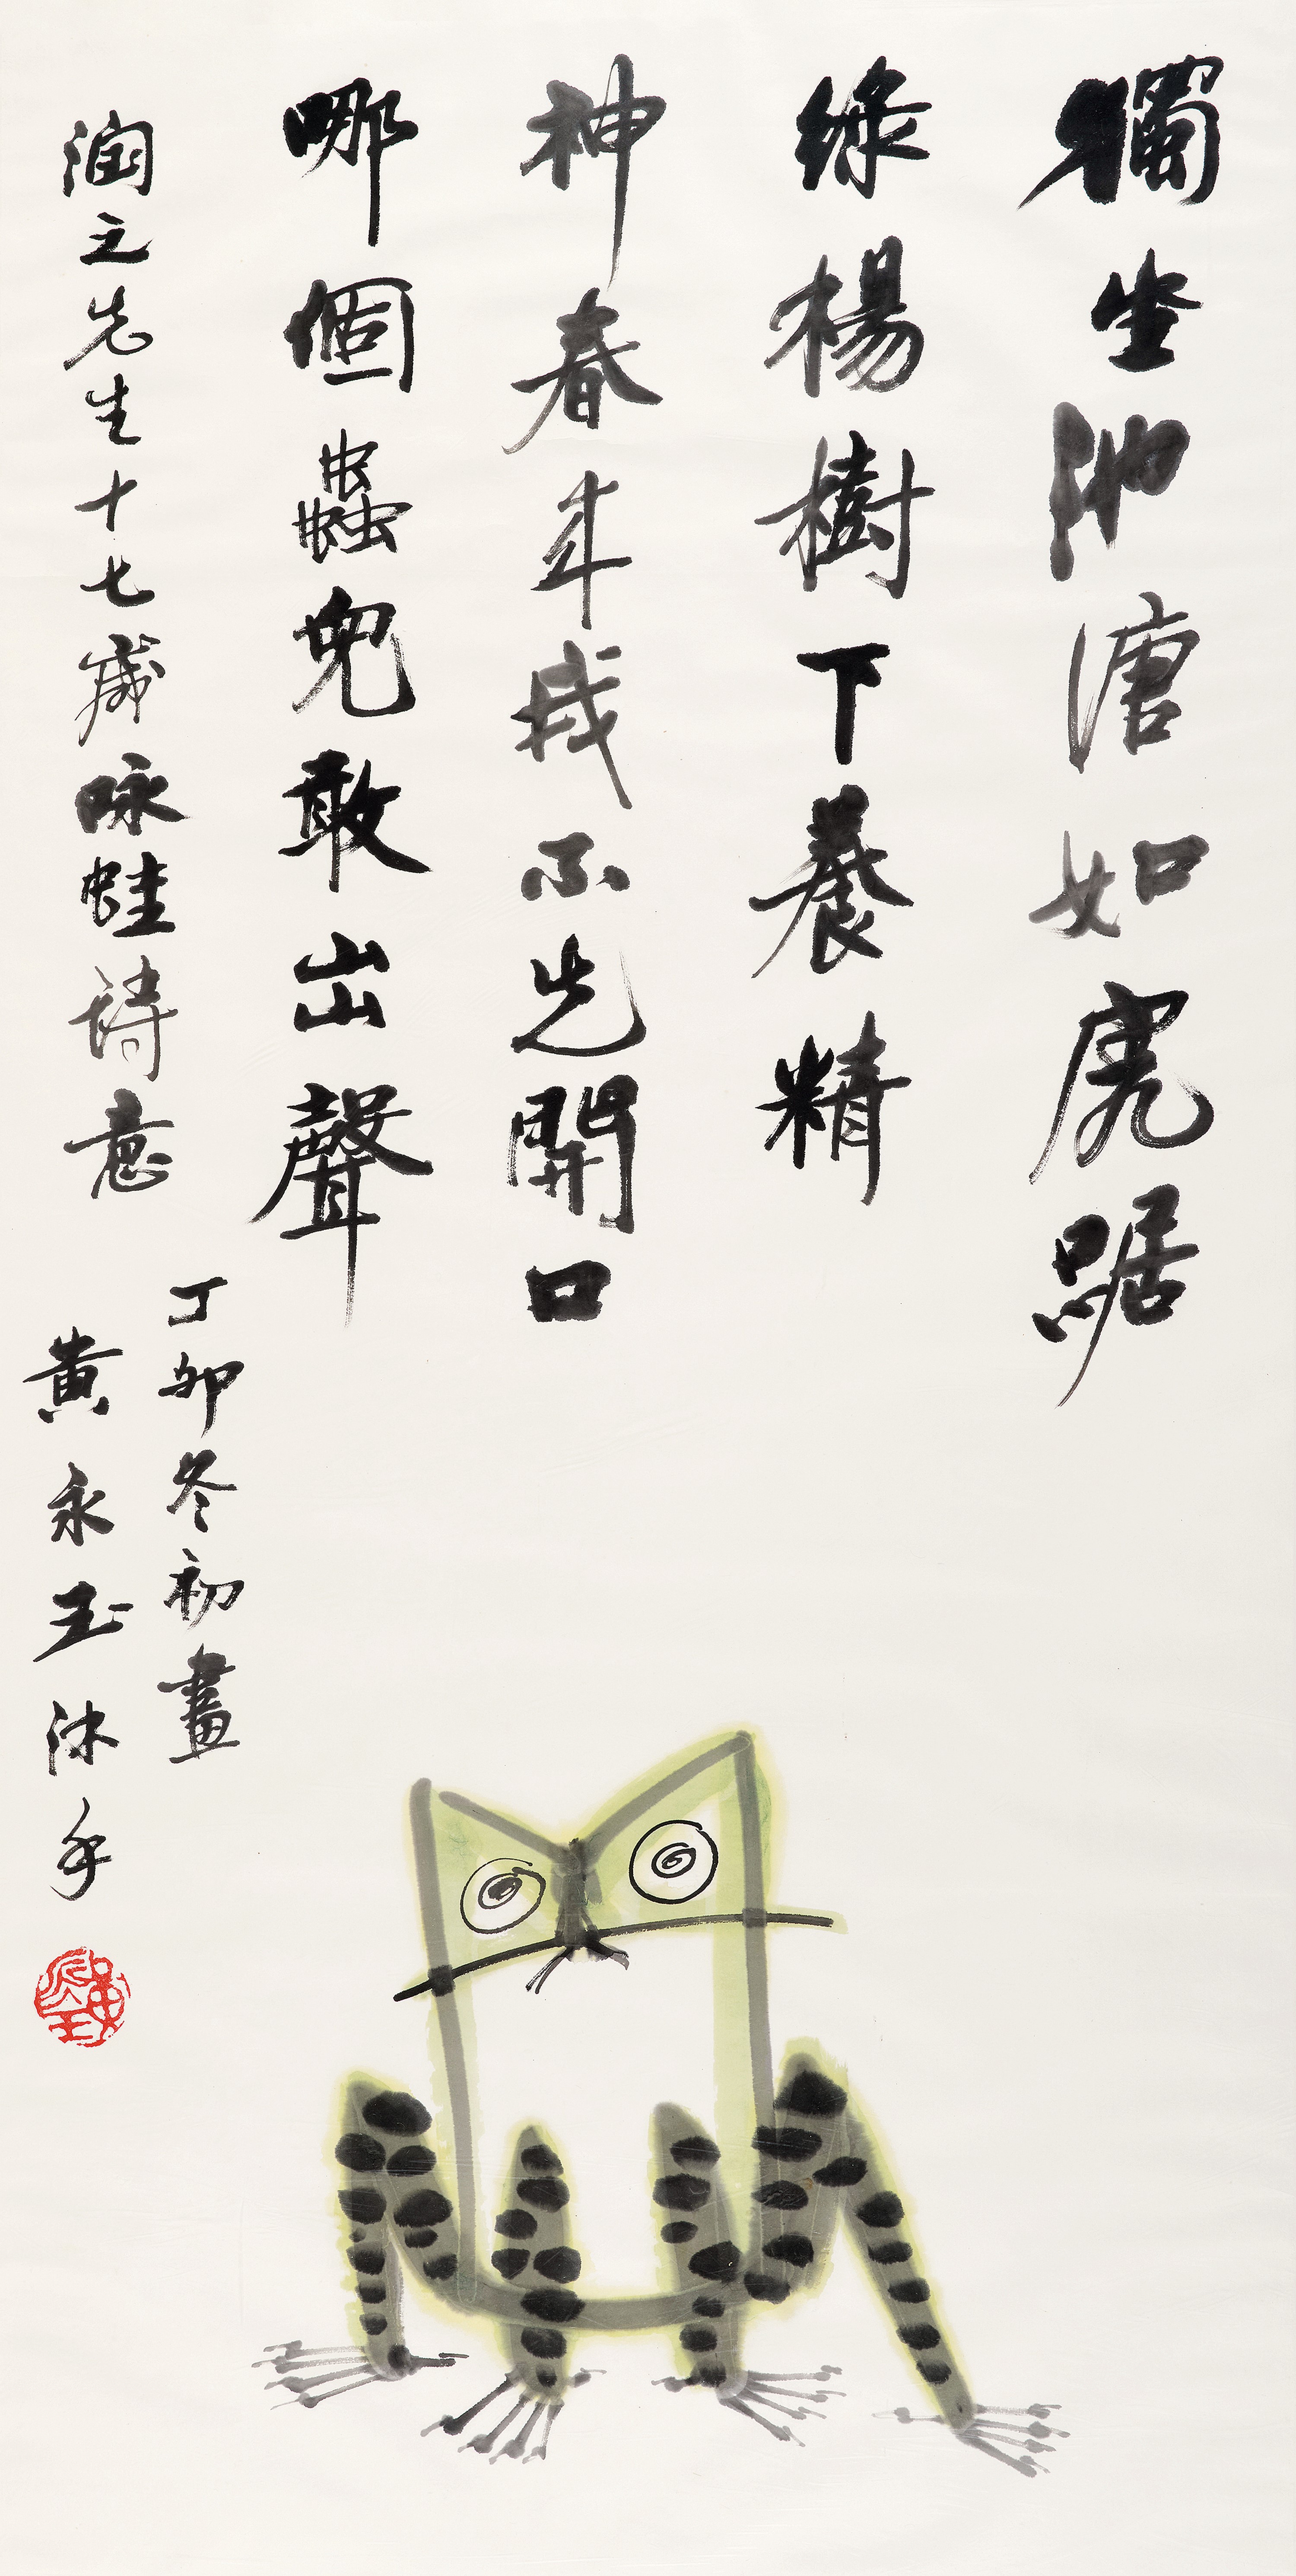 獨坐池溏如虎踞
綠楊樹下養精
神春來我不先開口
哪個蟲兒敢出聲
潤之先生十七歲咏蛙詩意
丁卯冬初畫
黄永玉沐手
黄永玉